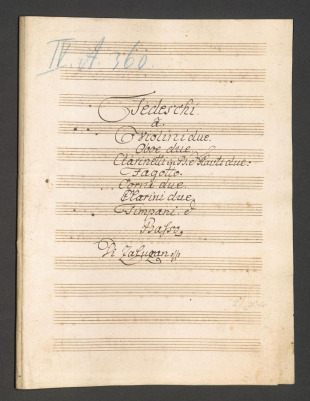 IV. A. 360.
Tedeschi.
a.
Violini due.
Oboe due.
Clarinetti in B. e Flauti due.
Fagotto.
Corni due.
Clarini due.
Timpani. e
Basso.
Di